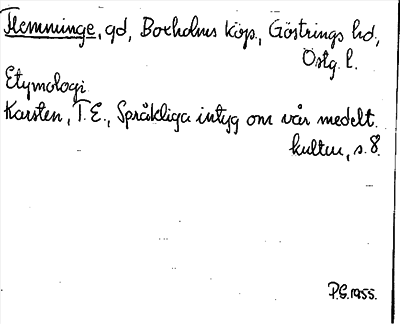 Flemminge, gd, Boxholms köp., Göstrings hd,
Östg. l.
Etymologi
Karsten, T.E., Språkliga intyg om vår medelt.
kultur, s. 8.
P.G. 1955.